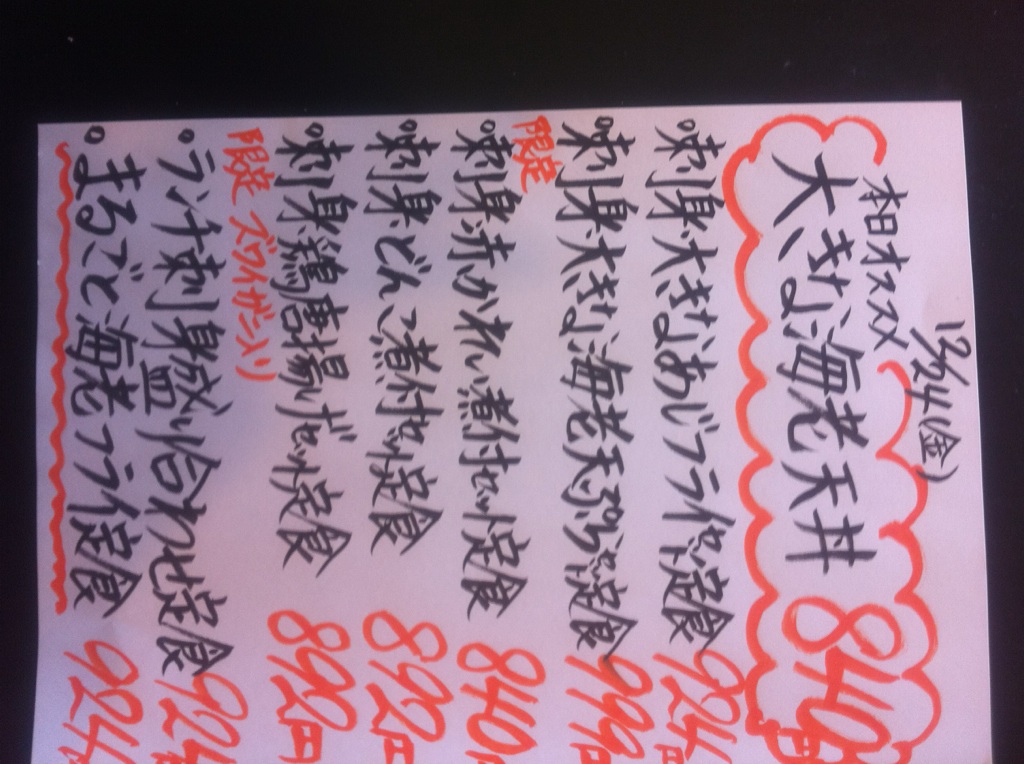 12/24(金)
本日オススメ
大きな海老天丼 840円
・刺身大きなあじフライセット定食 924円
・刺身大きな海老天ぷらセット定食 998円
限定
・刺身赤かれい煮付セット定食 840円
・刺身どんこ煮付セット定食 892円
・刺身鶏唐揚げセット定食 892円
限定 ズワイガニ入り
・ランチ刺身盛り合わせ定食 924
・まるごと海老フライ定食 924